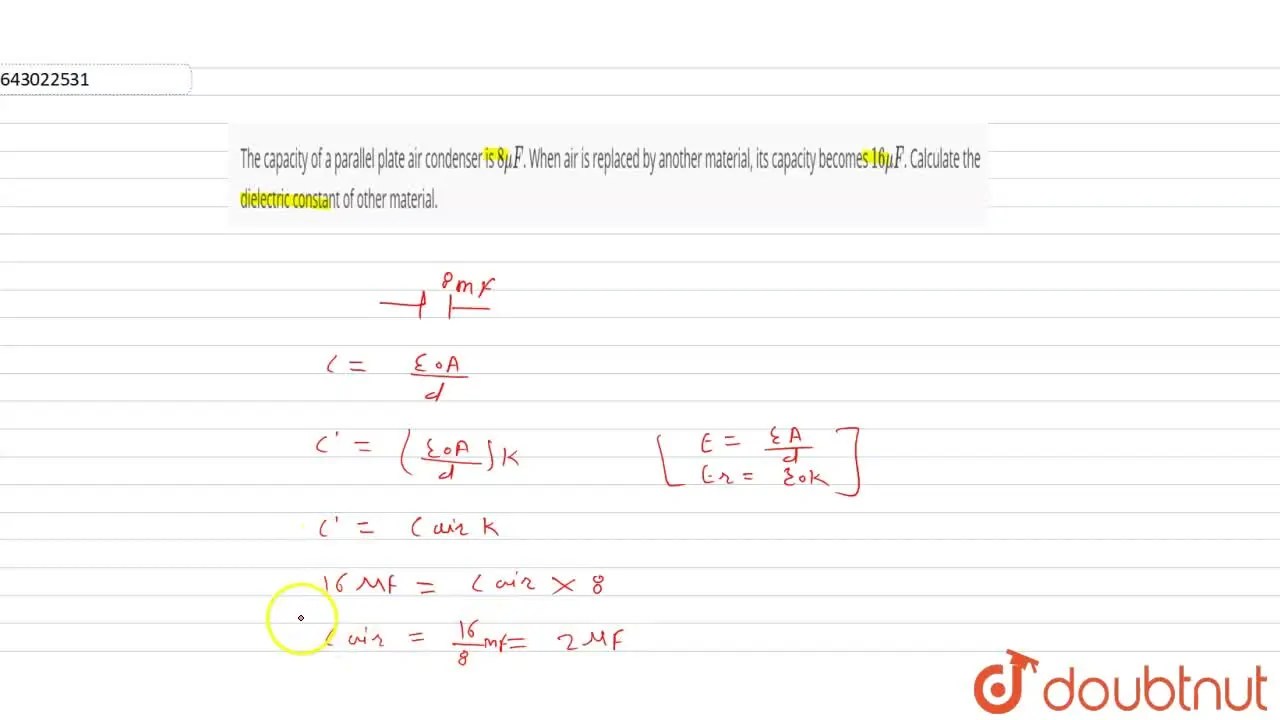 643022531
The capacity of a parallel plate air condenser is 8μF. When air is replaced by another material, its capacity becomes 16μF. Calculate the
dielectric constant of other material.
8mF
C = ε0A/d
C' = (ε0A/d)K
[E = εA/d
Er = ε0K]
C' = C air K
16 MF = C air × 8
C air = 16/8 MF = 2 MF
doubtnut